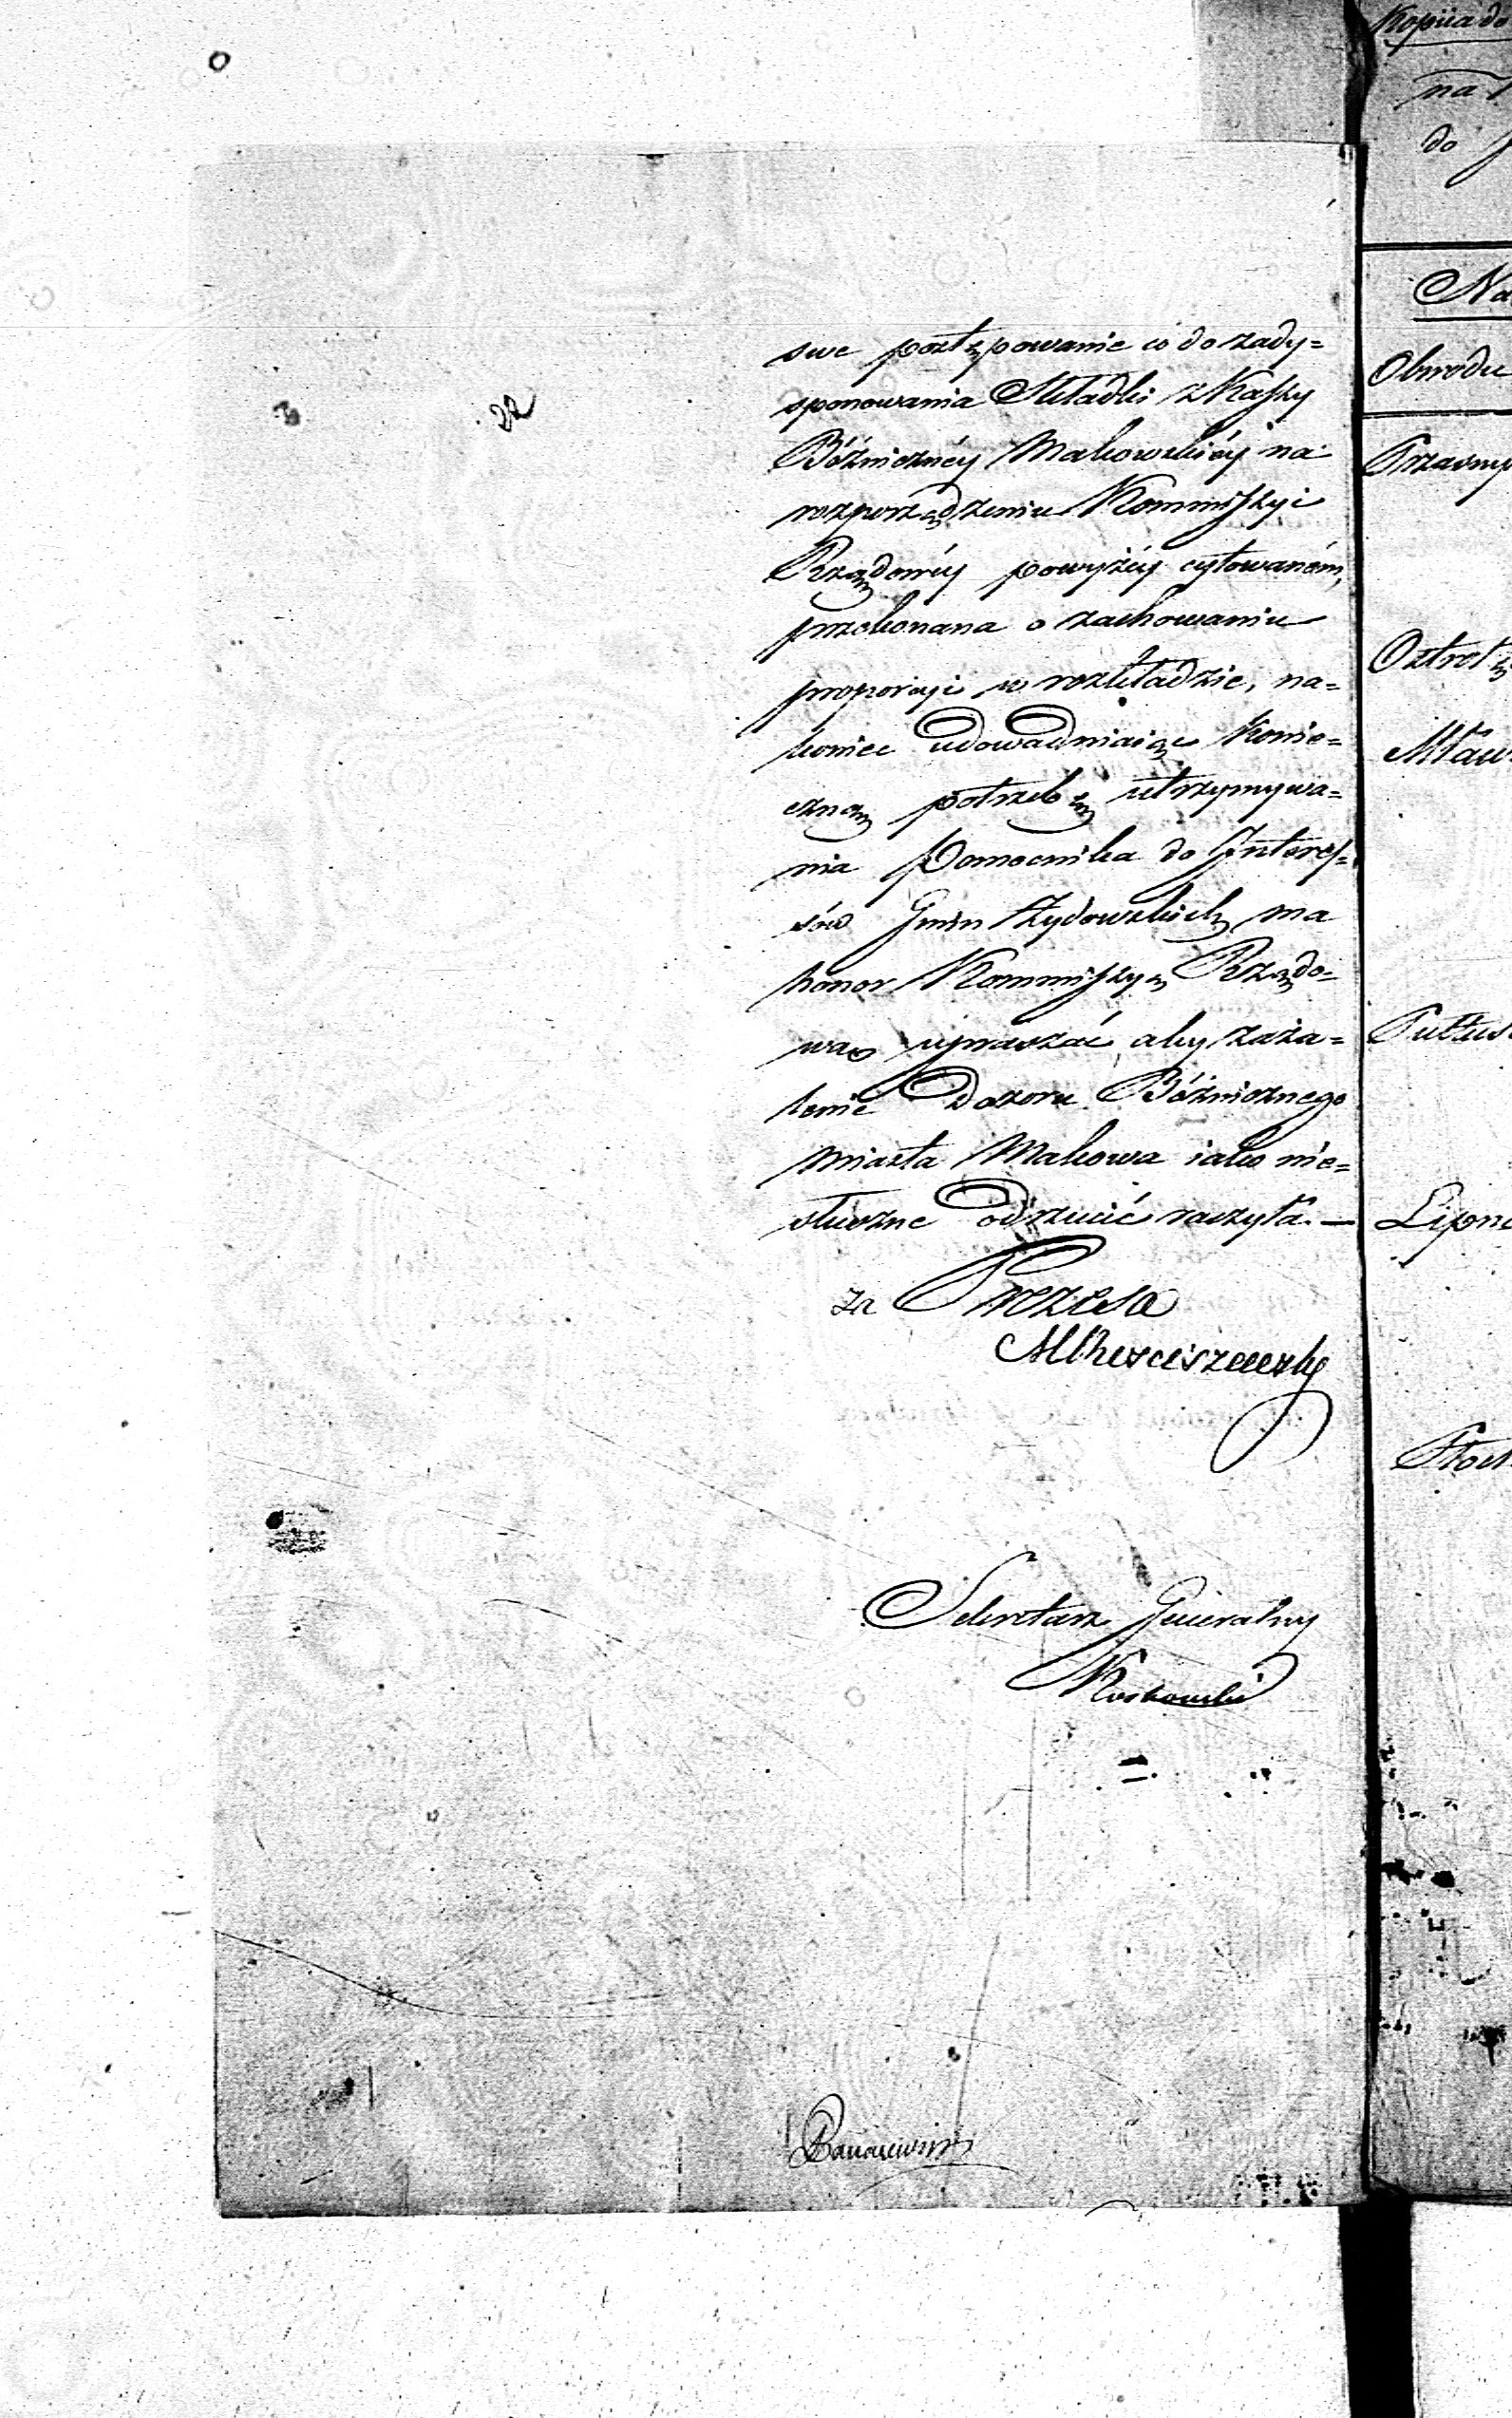 22
swe postępowanie co do zady=
sponowania Składki z Kassy
Bóźniczney Makowskiéy na
rozporządzeniu Kommissyi
Rządowéy powyżéy cytowaném,
przekonana o zachowaniu
proporcyi w rozkładzie, na=
koniec udowadniaiąc konie=
czną potrzebę utrzymywa=
nia Pomocnika do Interes=
sów Gmin Żydowskich, ma
honor Kommissyę Rządo=
wą upraszać aby zaża=
lenie Dozoru Bóżnicznego
Miasta Makowa iako nie=
słuszne odrzucić raczyła. —
za Prezesa
Sekretarz Generalny
Koskowski
Kopiia do
na
do
Na
Obwodu
Przasny
Ostrołę
Mław
Pułtus
Lipno
Płock